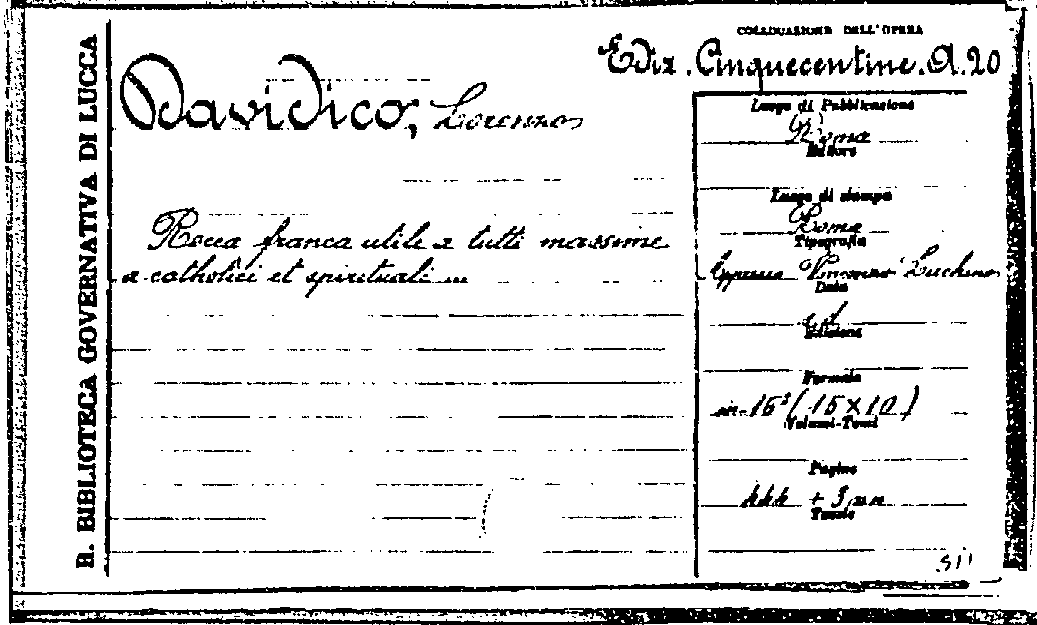 R. BIBLIOTECA GOVERNATIVA DI LUCCA
COLLOCAZIONE DELL'OPERA
Ediz. Cinquecentine. A. 20
Davidico, Lorenzo
Rocca franca utile a tutti massime
a catholici et spirituali ...
Luogo di Pubblicazione
Roma
Editore
Luogo di stampa
Roma
Tipografia
Appresso Vincenzo Luchino
Data
Edizione
Formato
in-16° (15 X 10)
Volumi-Tomi
Pagine
+ 3 nn
Tavole
511